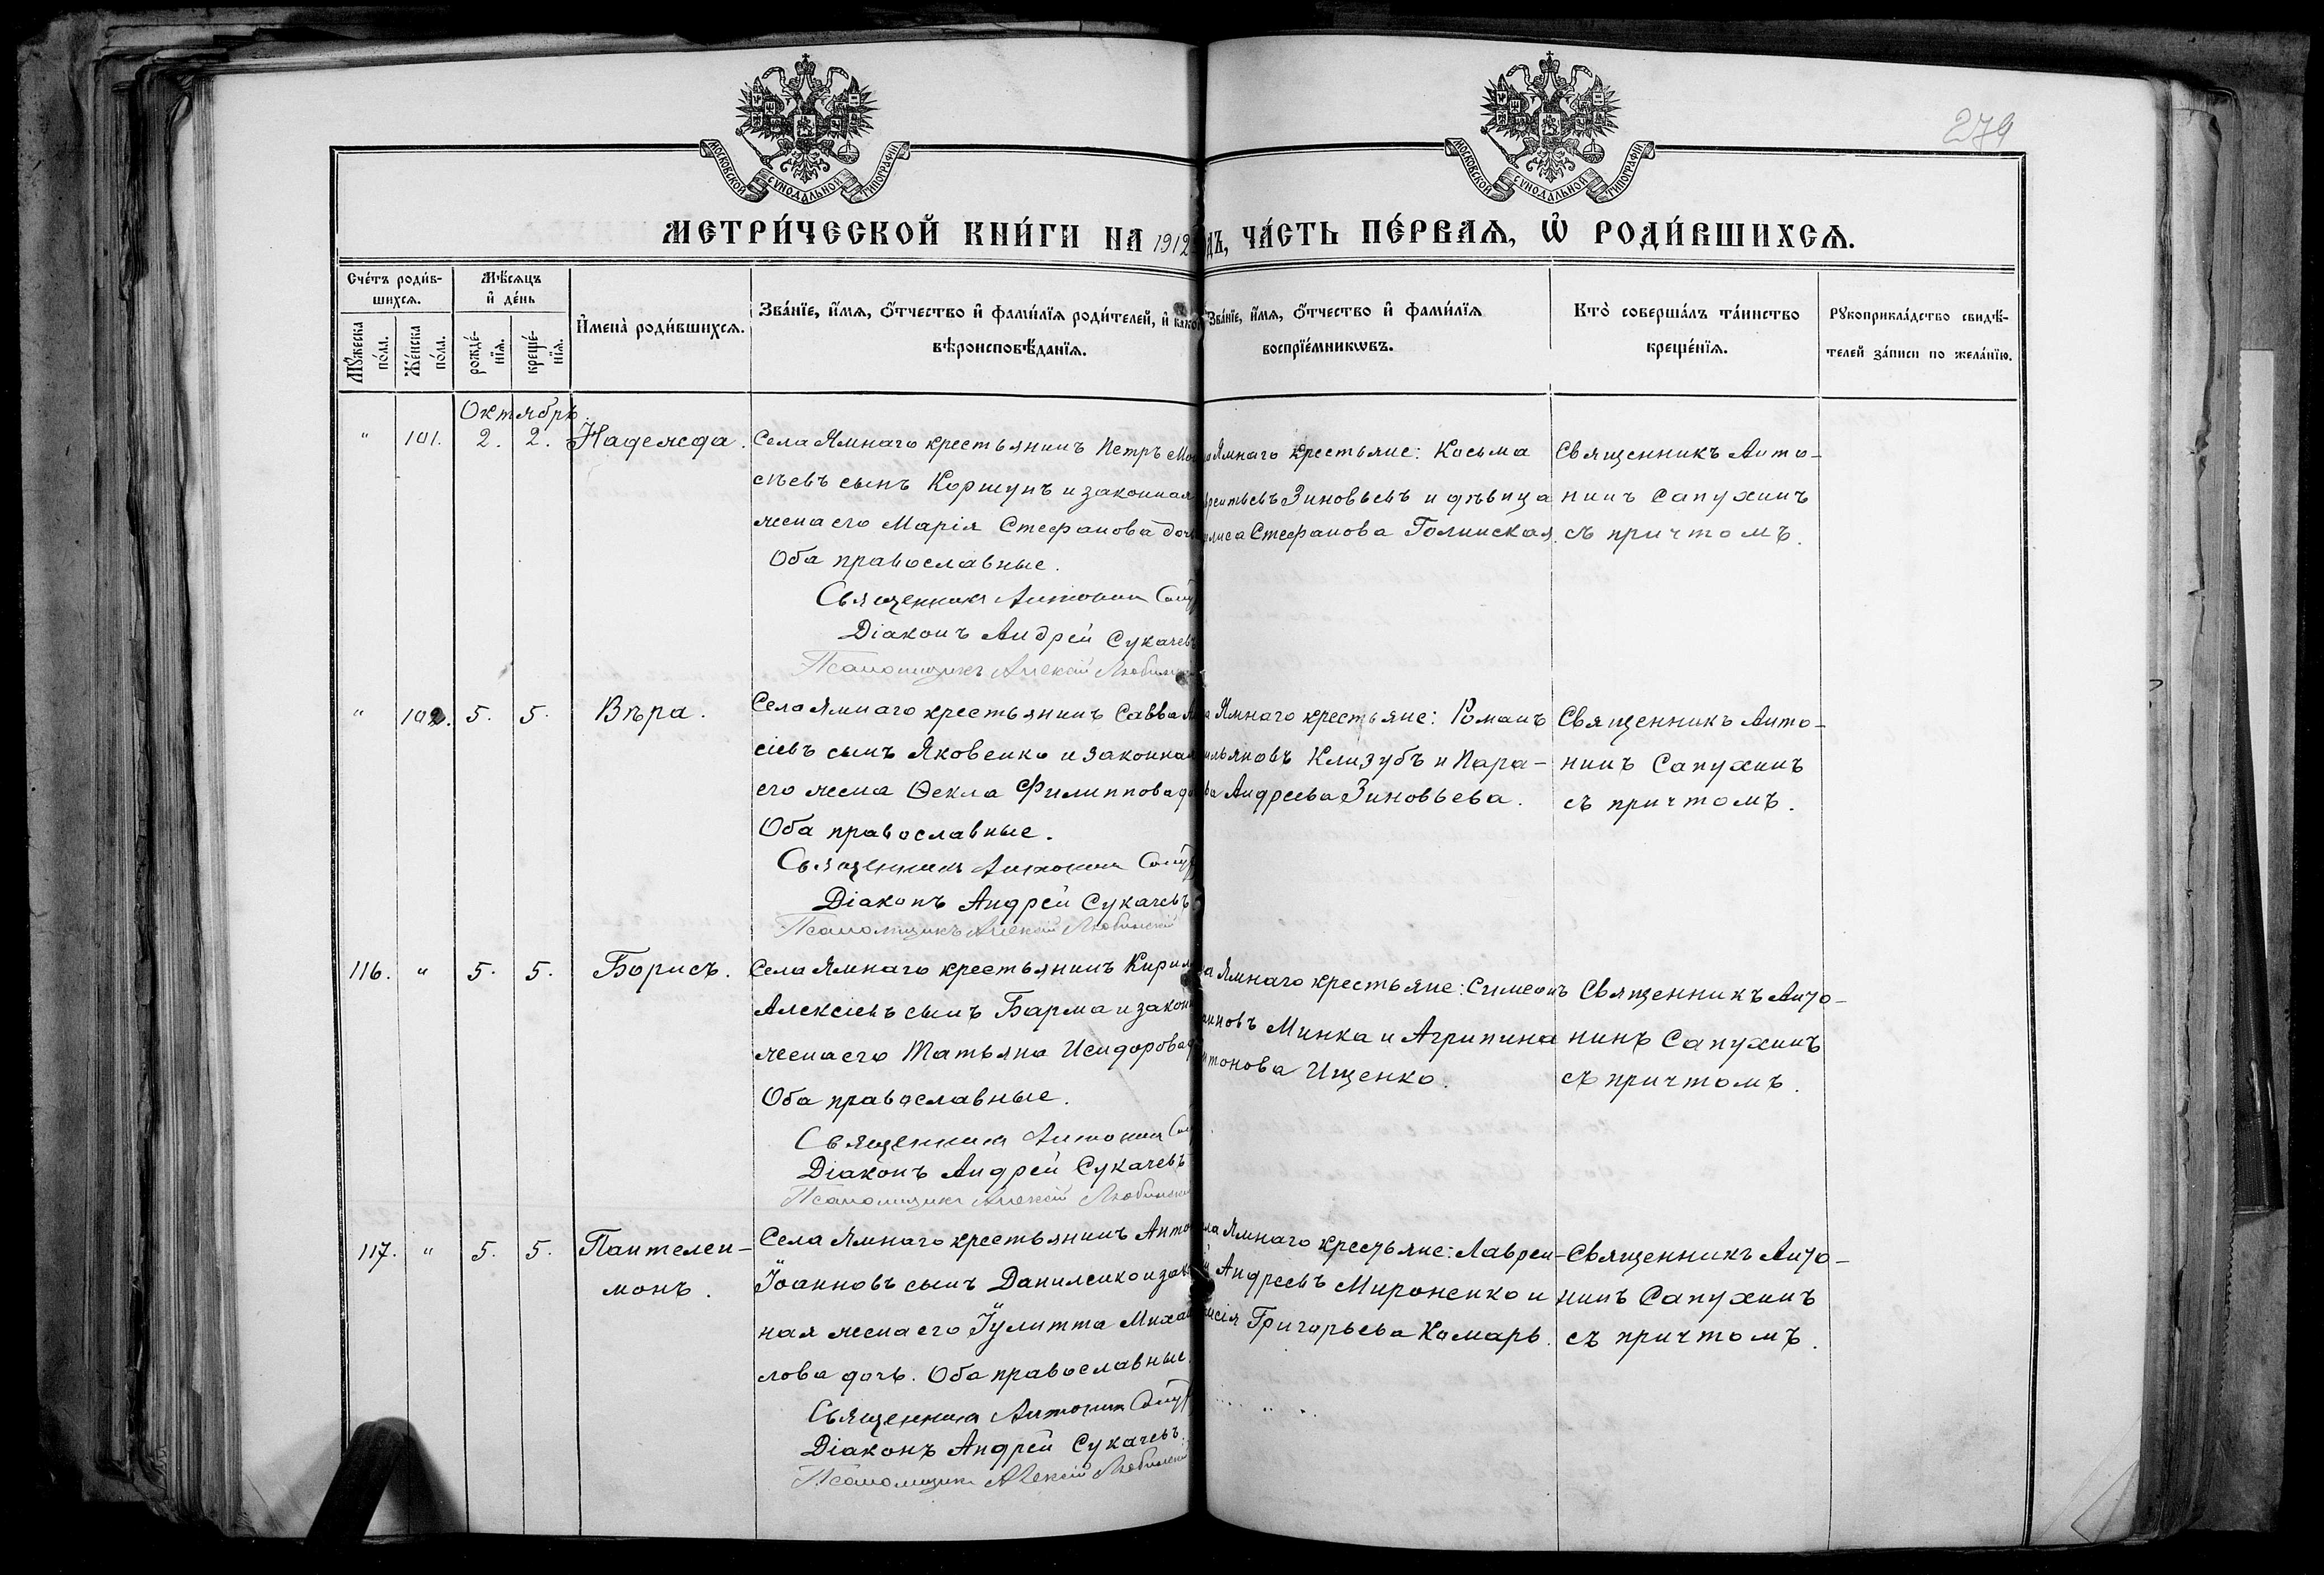 279
МОСКОВСКОЙ СУНОДАЛЬНОЙ ТИПОГРАФІИ
МОСКОВСКОЙ СУНОДАЛЬНОЙ ТИПОГРАФІИ
МЕТРИ́ЧЕСКОЙ КНИ́ГИ НА 1912
ДЪ, ЧА́СТЬ ПЕ́РВАѦ, Ѡ҆ РОДИ́ВШИХСѦ.
Сче́тъ роди́в-
шихсѧ.
Мꙋ́жеска
по́ла.
Же́нска
по́ла.
Мѣ́сѧцъ
и҆ де́нь
рожде́-
нїѧ.
креще́-
нїѧ.
И҆мена̀ роди́вшихсѧ.
Зва́нїе, и҆́мѧ, ѻ҆́тчество и҆ фами́лїѧ роди́телей, и҆
вѣроисповѣ́данїѧ.
Зва́нїе, и҆́мѧ, ѻ҆́тчество и҆ фами́лїѧ
воспрїе́мникѡвъ.
Кто̀ соверша́лъ та́инство
креще́нїѧ.
Рꙋкоприкла́дство свидѣ́-
телей за́писи по жела́нїю.
Октябрь.
" 101. 2. 2. Надежда.
Села Ямнаго крестьянинъ Петръ Мои
сѣевъ сынъ Коршунъ и законная
жена его Марія Стефанова дочь
Оба православные.
Священникъ Антонин Сапу
Діаконъ Андрей Сукачевъ
Псаломщикъ Алексій Любинск
Ямнаго крестьяне: Косьма
врентьевъ Зиновьевъ и дѣвица
Стефанова Голинская.
Священникъ Анто-
нинъ Сапухинъ
съ причтомъ.
" 102. 5. 5. Вѣра.
Села Ямнаго крестьянинъ Савва
сіевъ сынъ Яковенко и законная
его жена Ѳекла Филиппова до
Оба православные.
Священникъ Антонин Сапу
Діаконъ Андрей Сукачевъ
Псаломщикъ Алексій Любинскій
Ямнаго крестьяне: Романъ
ильяновъ Клизубъ и Пара-
ва Андреева Зиновьева.
Священникъ Анто-
нинъ Сапухинъ
съ причтомъ.
116. " 5. 5. Борисъ.
Села Ямнаго крестьянинъ Кирил
Алексіевъ сынъ Барма и закон
жена его Татьяна Исидорова д
Оба православные.
Священникъ Антонин Сап
Діаконъ Андрей Сукачевъ
Псаломщикъ Алексій Любинский
ла Ямнаго крестьяне: Симеонъ
анновъ Минка и Агрипина
нтонова Ищенко.
Священникъ Анто-
нинъ Сапухинъ
съ причтомъ.
117. " 5. 5. Пантелеи-
монъ.
Села Ямнаго крестьянинъ Анто
Іоанновъ сынъ Даниленко и зако
ная жена его Іулитта Михаи
лова дочь. Оба православные.
Священникъ Антонин Сапу
Діаконъ Андрей Сукачевъ.
Псаломщикъ Алексій Любинский
ла Ямнаго крестьяне: Лаврен-
й Андреевъ Мироненко и
исія Григорьева Комарь.
Священникъ Анто-
нинъ Сапухинъ
съ причтомъ.